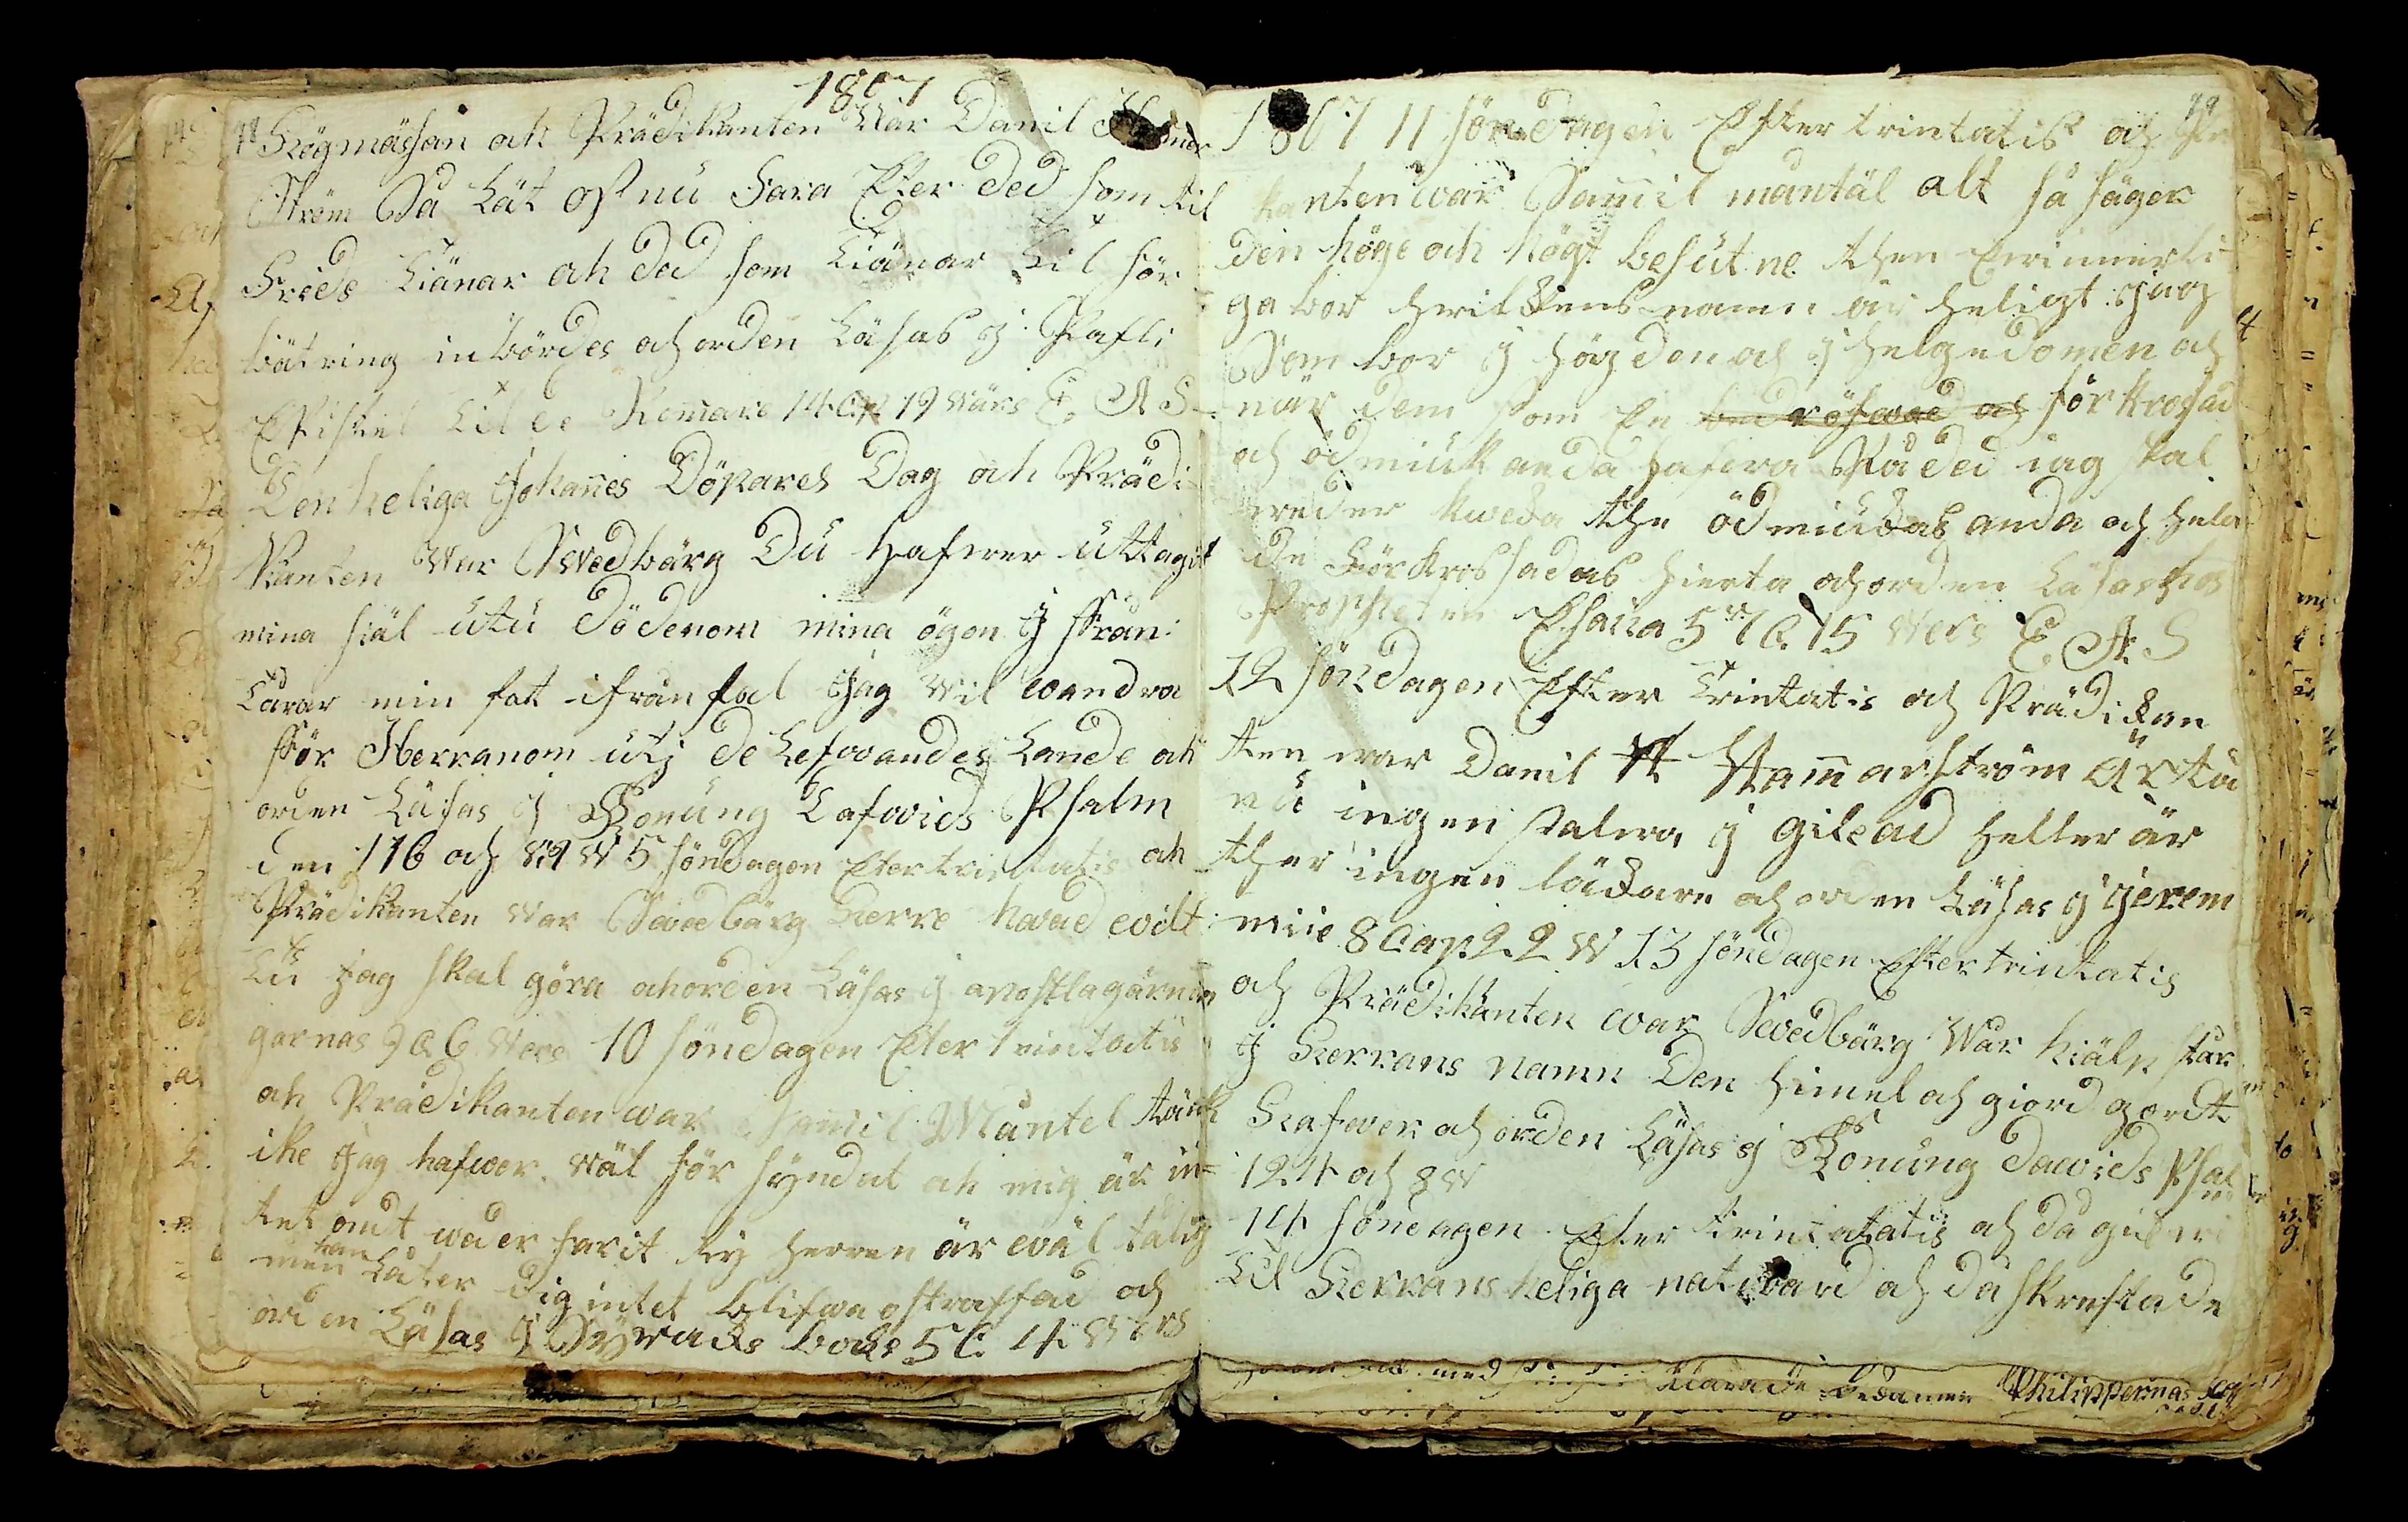 1807
98 Högmässan och Prädikanten War Danil
Ström Så Låt oss nu Fara Efter ded som til
Frids Tiänar och ded som Tiänar til för
bätring inbördes och orden Läsas j Pafli
Epistel Til de Romare 14 Cap 19 Wärs E. A S
Den heliga Johannes Döpares Dag och Prädi
kanten War Swedbärg Du hafwer uttagit
mina siäl utu dödenom mina ögon j från
Tårar min fot ifrån fal Jag Wil wandra
För Herranom utj de Lefwandes Lande och
orden Läsas j Konung Dafwids Psalm
den 116 och 8 9 W 5 söndagen Efter trintatis och
Prädikanten War Swedbärg Herre hwad wilt
Tu Jag skal göra och orden Läsas j apostlagärnin
garnas 9 C 6 Wers 10 söndagen Efter trintatis
och Prädikanten war Samil Mantel tänk
ike Jag hafwer wäl för syndat och mig är in=
tet ondt weder farit ty herren är wäl tålig
men han Låter dig intet blifwa ostraffad och
orden Läsas j Syracks bock 5 C 4 Wers
1807 11 söndagen Efter trintatis och Pre 99
kanten war Samil mantäl alt så säger
Den höge och högt besutne then Ewinnerli
ga bor hwilkens namn är heligt jag
Som bor j högden och j helgedomen och
när dem som En bedröfwad och förkrosad
och ödmiuk anda hafwa På ded iag skal
weder kweka the ödmiukas anda och hela
de Förkrossadas hierta och orden Läsas hos
Propheten Esaia 57 C 15 Wers E. A. S
12 söndagen Efter Trintatis och Prädikan
ten war Danil H Hammarström Är tå
nu ingen salwa j Gilead heller är
ther ingen läkare och orden Läsas j Jerem
miie 8 Cap 22 W 13 söndagen Efter trintatis
och Prädikanten war Swedbärg War hiälp står
J Herrans Namn Den himel och giord gordt
Hafwer och orden Läsas j Konung dawids Psal
124 och 8 W
14 söndagen Efter trintatatis och då gick wi
Til Herrans heliga natward och då skrefs
med Klarade Philippernas